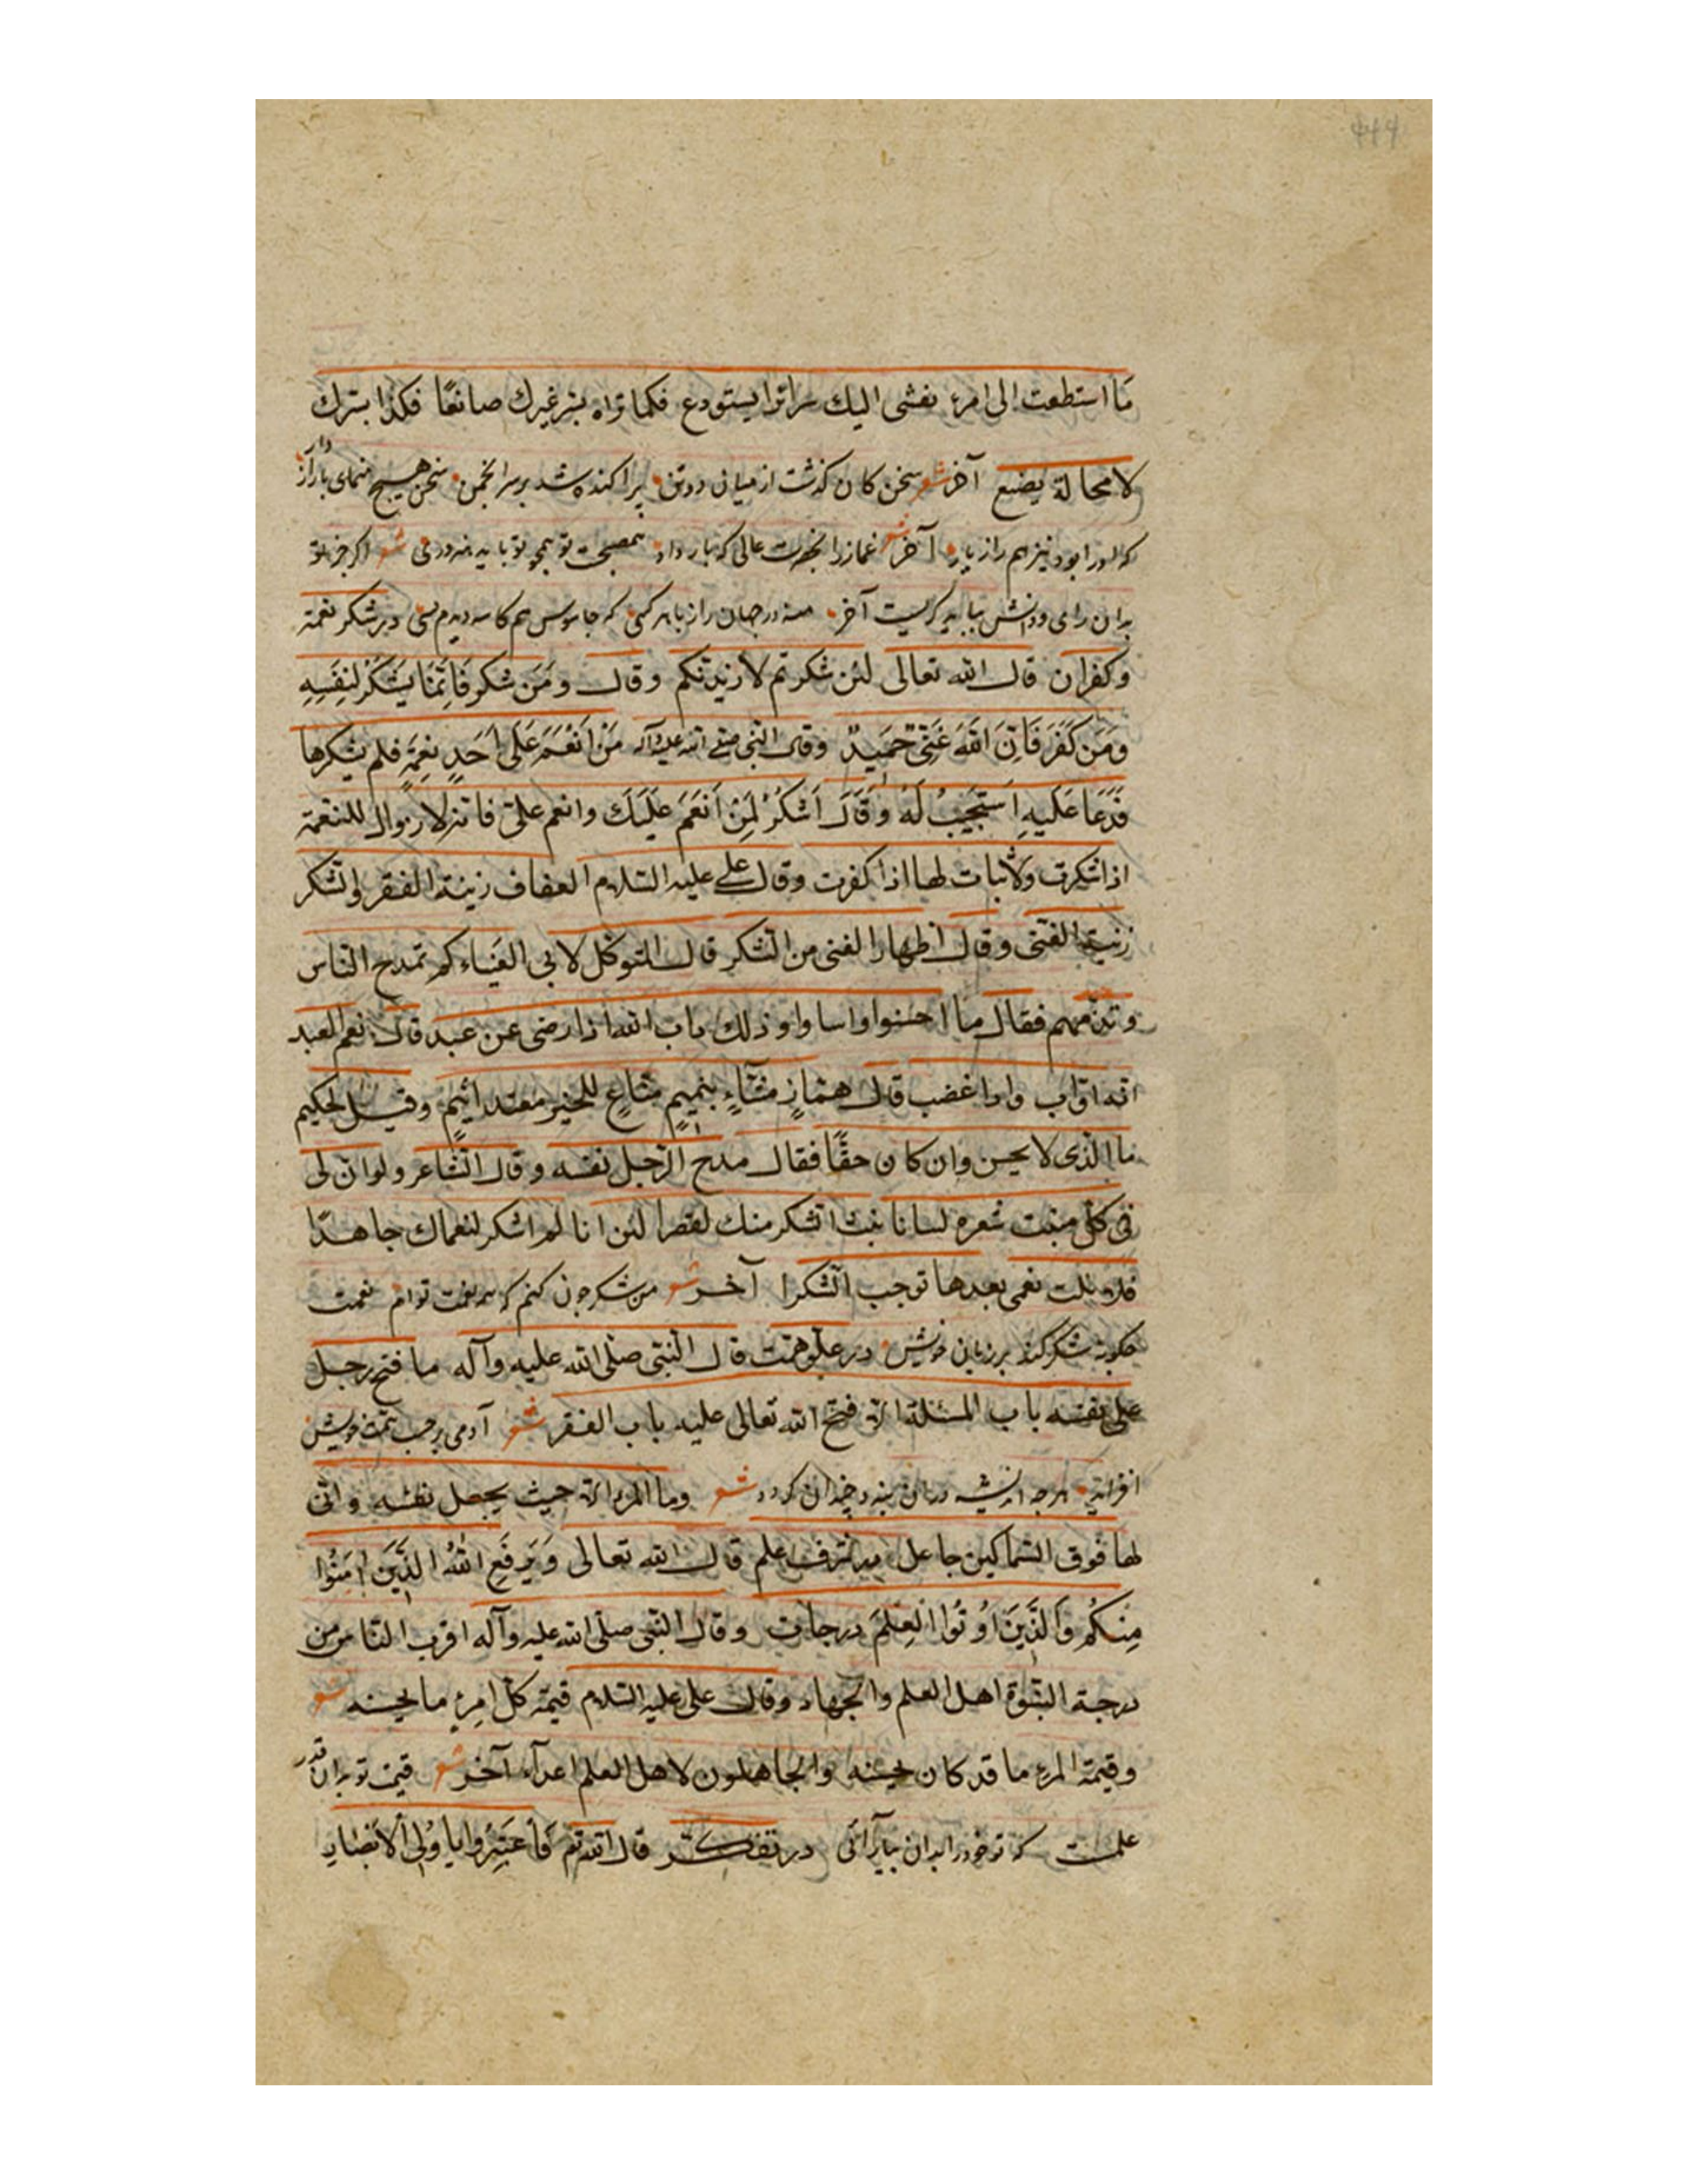 ما استطعت الی امرء یفشی الیك سرائرا یستودع فکما تراه بسر غیرك صانعًا فکذا بسرك
لا محالة یضیع آخر شعر سخن کان گذشت از میان دو تن پراکنده شد بر سر انجمن سخن هیچ منمای با رازدار
که او را بود نیز هم راز یار آخر شعر غماز را بحضرت عالی که بار داد شعر اگر جز تو
بدان رای ودانش بباید گریست آخر منه در جهان راز با هر کسی که جاسوس هم کاسه دیدم بسی در شکر نعمة
وکفران قال الله تعالی لئن شکرتم لازیدنکم وقال ومَن شکر فَاِنَّمَا یَشکُرُ لِنَفسِهِ
ومَن کَفَرَ فَاِنَّ اللهَ غَنِیٌّ حَمیدٌ وقال النبی صلی الله علیه وآله مَن اَنعَمَ عَلی اَحَدٍ نِعمَةٍ فلم یشکرها
فَدَعَا عَلَیهِ اَستَجیبُ لَهُ وَقَالَ اَشکُرُ لِمَن اَنعَمَ عَلَیكَ وانعم علی فانه لا زوال للنعمة
اذا شکرت ولا ثبات لها اذا کفرت وقال علی علیه السلام العفاف زینة الفقر والشکر
زینة الغنی وقال اظهار الغنی من الشکر قال المتوکل لابی العیناء کم تمدح الناس
وتذمهم فقال ما احسنوا واساوا وذلك باب الله اذا رضی عن عبد قال نعم العبد
انه اواب واذا غضب قال همّازٍ مشّاءٍ بنمیمٍ منّاعٍ للخیر معتد اثیمٍ وقیل لحکیم
ما الذی لا یحسن وان کان حقًا فقال مدح الرجل نفسه وقال الشاعر ولو ان لی
فی کل منبت شعره لسانا یبث الشکر منك لقصرا لئن انا لم اشکر لنعماك جاهدًا
فلا نلت نعمی بعدها توجب الشکرا آخر شعر من شکر چون کنم که همه نعمت توام نعمت
چگونه شکر کند بر زبان خویش در علو همت قال النبی صلی الله علیه وآله ما فتح رجل
علی نفسه باب المسئلة الا فتح الله تعالی علیه باب الفقر شعر آدمی بر حسب همت خویش
افزاید هرچه اندیشه در آن بندد چندان گردد شعر وما المرء الا حیث یجعل نفسه وانی
لها فوق السماکین جاعل در شرف علم قال الله تعالی وَیَرفَعِ اللهُ الَّذینَ امَنُوا
مِنکُم وَالَّذینَ اُوتُوا العِلمَ درجات وقال النبی صلی الله علیه وآله اقرب الناس من
درجة النبوة اهل العلم والجهاد وقال علی علیه السلام قیمة کل امرئ ما یحسنه شعر
وقیمة المرء ما قد کان یحسنه والجاهلون لاهل العلم اعداء آخر شعر قیمت تو بدان قدر
علمست که تو خود را بدان بیارائی در تفکر قال الله تع فَاعتَبِرُوا یا اُولِی الاَبصَار